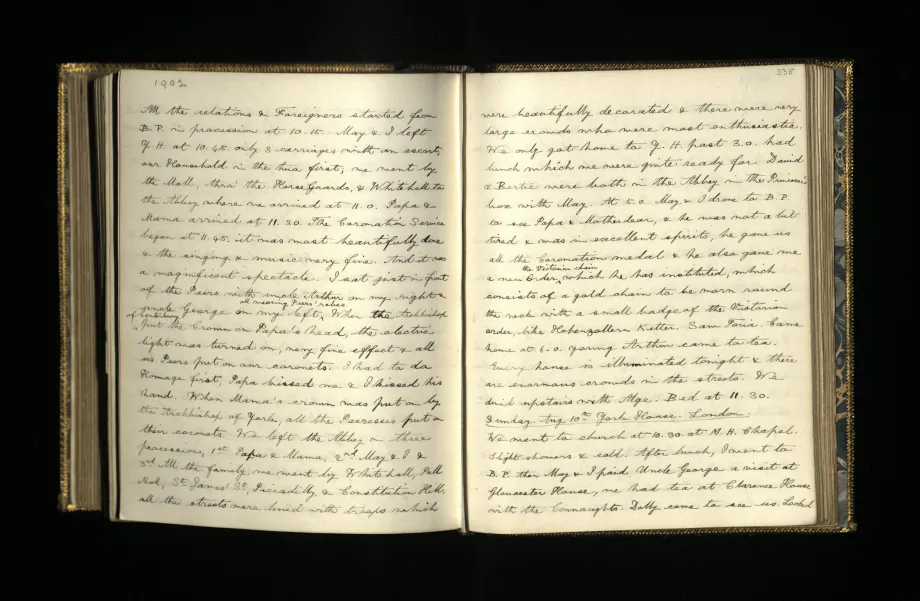 1902
All the relations & Foreigners started from
B.P. in procession at 10.15. May & I left
Y.H. at 10.45. only 3 carriages with an escort,
our Household in the two first, we went by
the Mall, thro' the Horse Guards, & Whitehall to
the Abbey where we arrived at 11.0. Papa &
Mama arrived at 11.30. The Coronation Service
began at 11.45. it was most beautifully done
& the singing & music very fine. And it was
a magnificent spectacle. I sat just in front
of the Peers with uncle Arthur on my right &
all wearing Peers' robes.
uncle George on my left, When the Archbishop
of Canterbury
put the Crown on Papa's head, the electric
light was turned on, very fine effect & all
us Peers put on our coronets. I had to do
Homage first, Papa kissed me & I kissed his
hand. When Mama's crown was put on by
the Archbishop of York, all the Peeresses put on
their coronets. We left the Abbey in three
processions, 1st Papa & Mama, 2nd May & I &
3rd All the family, we went by Whitehall, Pall
Mall, St James' St, Piccadilly & Constitution Hill,
all the streets were lined with troops which
335
were beautifully decorated & there were very
large crowds who were most enthusiastic.
We only got home to Y.H. past 3.0. had
lunch which we were quite ready for. David
& Bertie were both in the Abbey in the Princesses
box with May. At 5.0. May & I drove to B.P.
to see Papa & Motherdear, & he was not a bit
tired & was in excellent spirits, he gave us
all the Coronation medal & he also gave me
the Victorian chain
a new Order, which he has instituted, which
consists of a gold chain to be worn round
the neck with a small badge of the Victorian
order, like Hohenzollern Ketter. Saw Toria. Came
home at 6.0. young Arthur came to tea.
Every house is illuminated tonight & there
are enormous crowds in the streets. We
dined upstairs with Alge. Bed at 11.30.
Sunday Aug 10th York House. London.
We went to church at 10.30. at M.H. Chapel.
Slight showers & cold. After lunch, I went to
B.P. then May & I paid Uncle George a visit at
Gloucester House, we had tea at Clarence House
with the Connaughts. Dolly came to see us. Looked